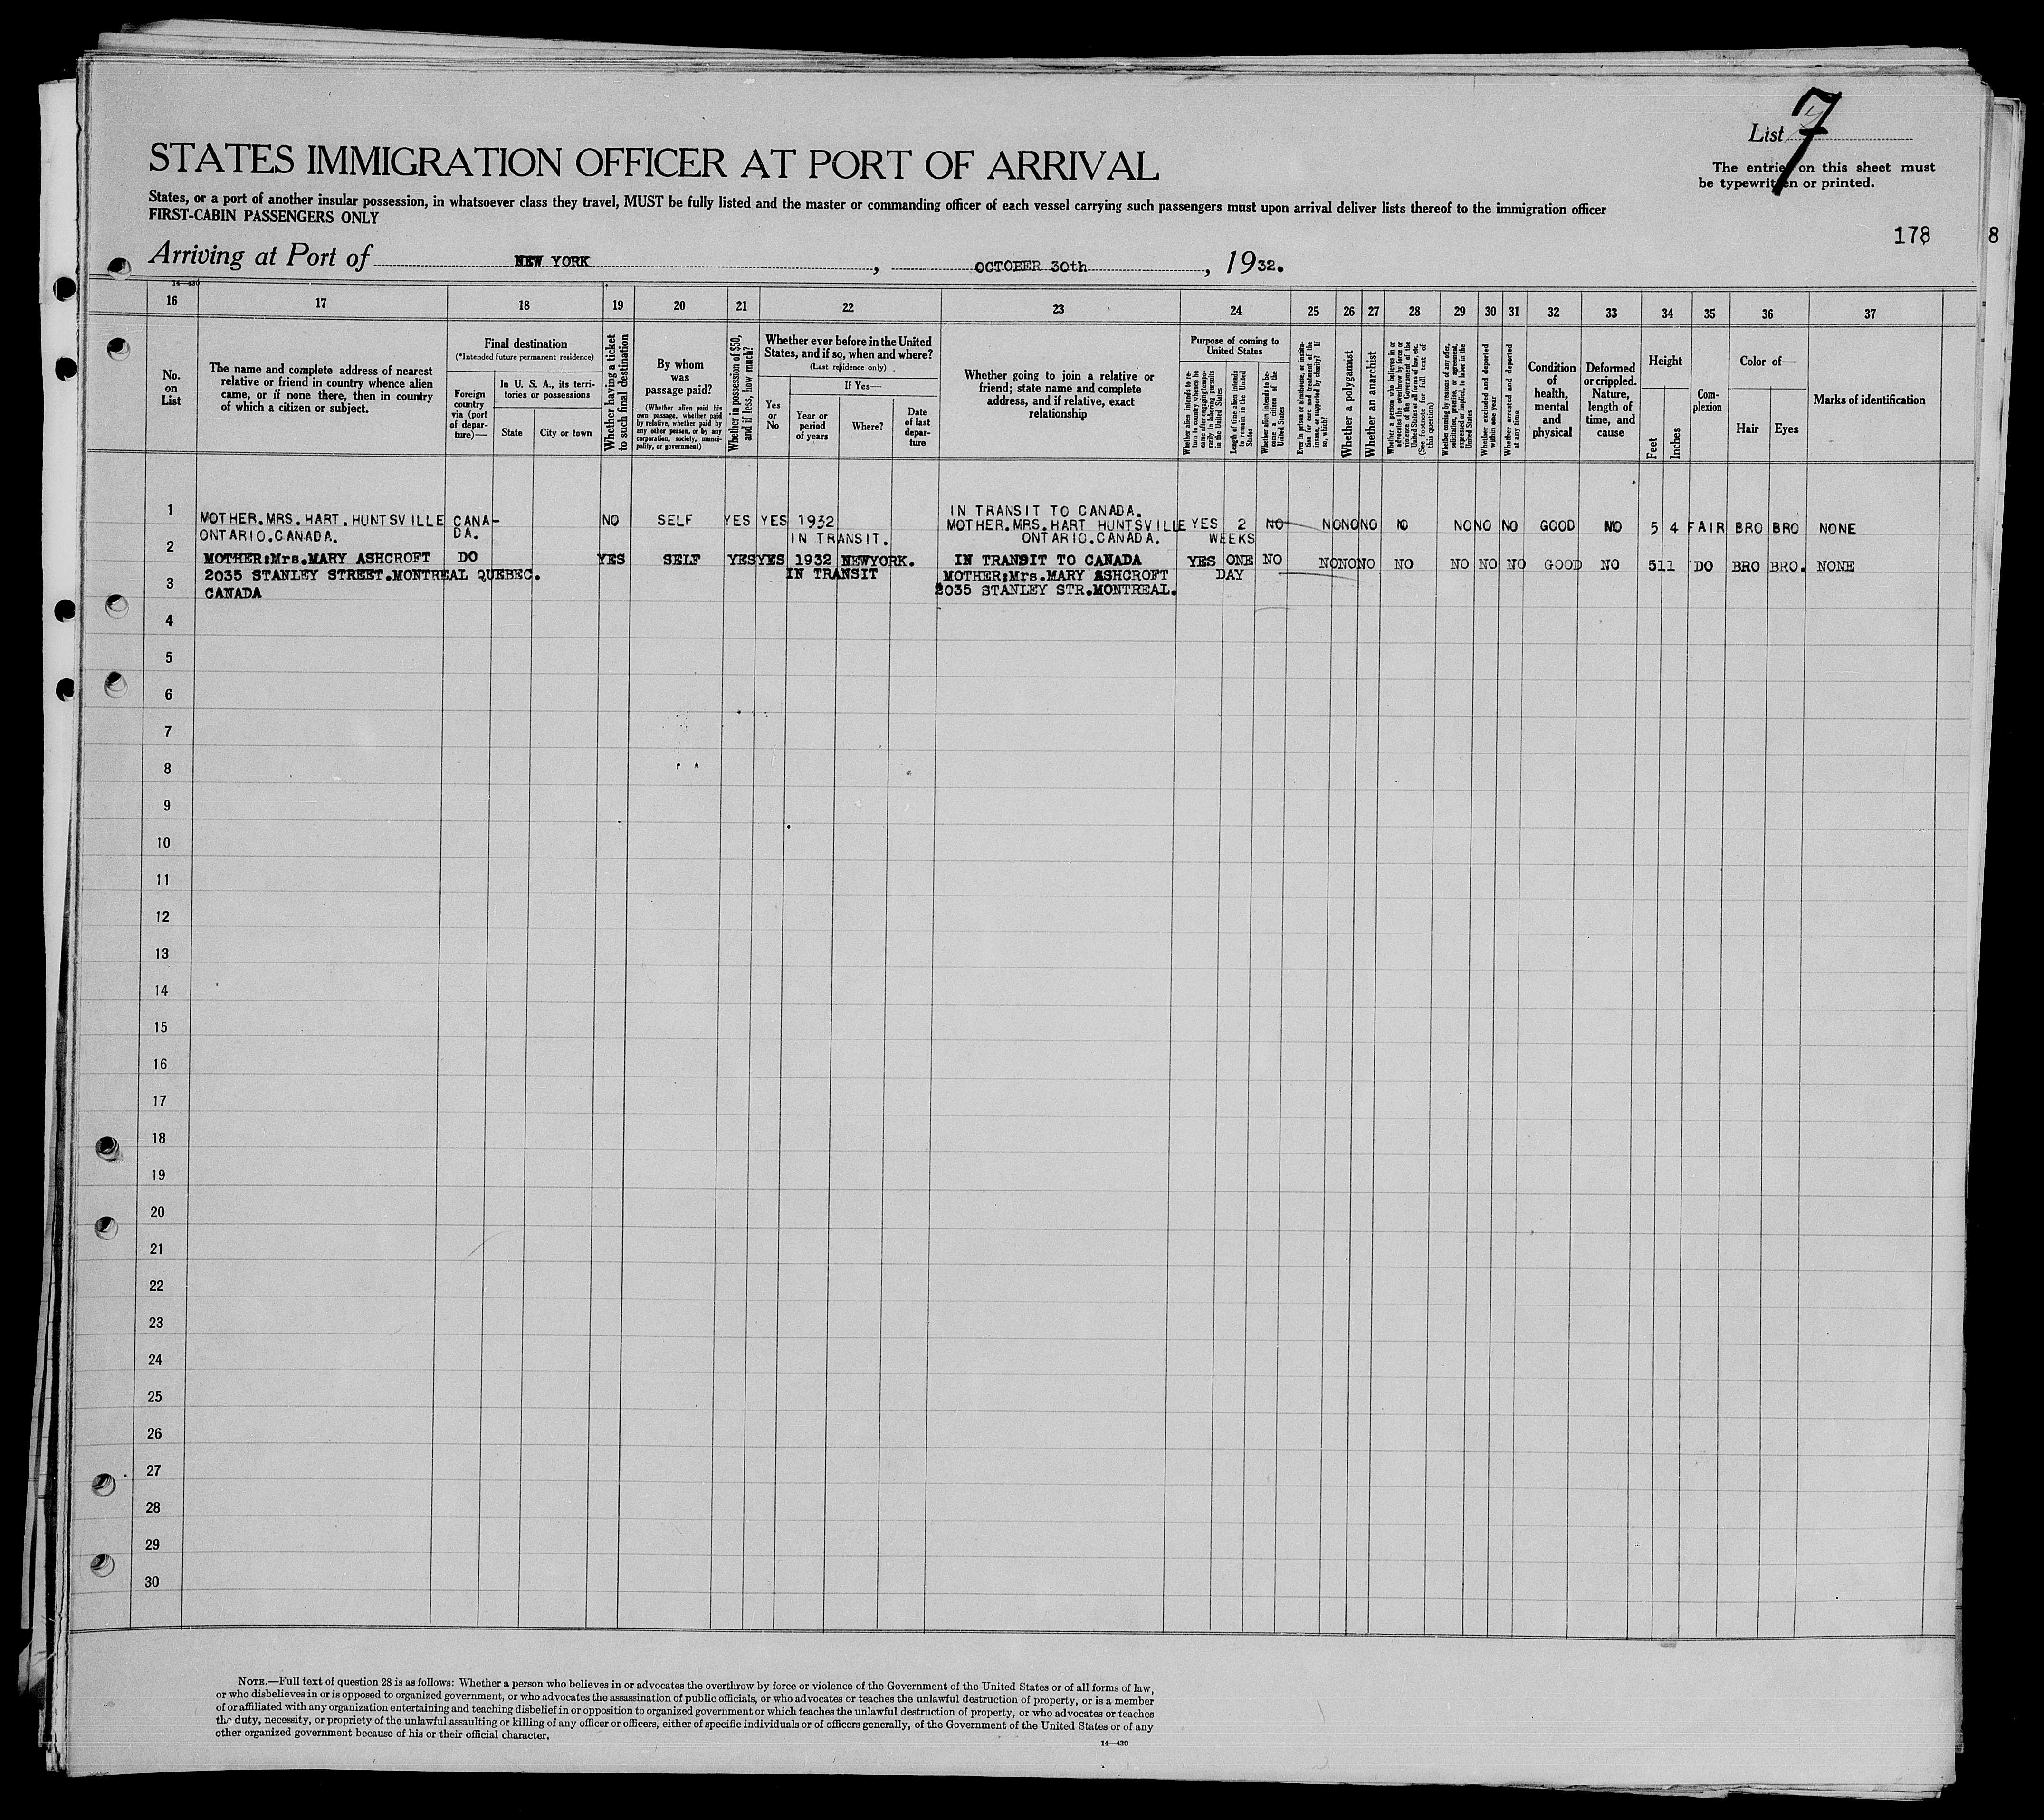 List 7
STATES IMMIGRATION OFFICER AT PORT OF ARRIVAL
The entries on this sheet must
be typewritten or printed.
States, or a port of another insular possession, in whatsoever class they travel, MUST be fully listed and the master or commanding officer of each vessel carrying such passengers must upon arrival deliver lists thereof to the immigration officer
FIRST-CABIN PASSENGERS ONLY
178
8
Arriving at Port of NEW YORK, OCTOBER 30th, 1932.
14—430
16 17 18 19 20 21 22 23 24 25 26 27 28 29 30 31 32 33 34 35 36 37
No. on List
The name and complete address of nearest
relative or friend in country whence alien
came, or if none there, then in country
of which a citizen or subject.
Final destination
(*Intended future permanent residence)
Foreign country via (port of departure)—
In U. S. A., its territories or possessions
State
City or town
Whether having a ticket to such final destination
By whom was passage paid?
(Whether alien paid his own passage, whether paid by relative, whether paid by any other person, or by any corporation, society, municipality, or government)
Whether in possession of $50, and if less, how much?
Whether ever before in the United States, and if so, when and where?
(Last residence only)
Yes or No
If Yes—
Year or period of years
Where?
Date of last departure
Whether going to join a relative or
friend; state name and complete
address, and if relative, exact
relationship
Purpose of coming to United States
Whether alien intends to return to country whence he came after engaging temporarily in laboring pursuits in the United States
Length of time alien intends to remain in the United States
Whether alien intends to become a citizen of the United States
Ever in prison or almshouse, or institution for care and treatment of the insane, or supported by charity? If so, which?
Whether a polygamist
Whether an anarchist
Whether a person who believes in or advocates the overthrow by force or violence of the Government of the United States or all forms of law, etc. (See footnote for full text of this question)
Whether coming by reason of any offer, solicitation, promise, or agreement, expressed or implied, to labor in the United States
Whether excluded and deported within one year
Whether arrested and deported at any time
Condition of health, mental and physical
Deformed or crippled. Nature, length of time, and cause
Height
Feet
Inches
Complexion
Color of—
Hair
Eyes
Marks of identification
IN TRANSIT TO CANADA.
1 MOTHER.MRS.HART.HUNTSVILLE CANA- NO SELF YES YES 1932 MOTHER.MRS.HART HUNTSVILLE YES 2 NO NO NO NO NO NO NO NO GOOD NO 5 4 FAIR BRO BRO NONE
ONTARIO.CANADA. DA. IN TRANSIT. ONTARIO.CANADA. WEEKS
2 MOTHER:Mrs.MARY ASHCROFT DO YES SELF YES YES 1932 NEWYORK. IN TRANSIT TO CANADA YES ONE NO NO NO NO NO NO NO NO GOOD NO 511 DO BRO BRO. NONE
2035 STANLEY STREET.MONTREAL QUEBEC. IN TRANSIT MOTHER:Mrs.MARY ASHCROFT DAY
3 CANADA 2035 STANLEY STR.MONTREAL.
4
5
6
7
8
9
10
11
12
13
14
15
16
17
18
19
20
21
22
23
24
25
26
27
28
29
30
NOTE.—Full text of question 28 is as follows: Whether a person who believes in or advocates the overthrow by force or violence of the Government of the United States or of all forms of law,
or who disbelieves in or is opposed to organized government, or who advocates the assassination of public officials, or who advocates or teaches the unlawful destruction of property, or is a member
of or affiliated with any organization entertaining and teaching disbelief in or opposition to organized government or which teaches the unlawful destruction of property, or who advocates or teaches
the duty, necessity, or propriety of the unlawful assaulting or killing of any officer or officers, either of specific individuals or of officers generally, of the Government of the United States or of any
other organized government because of his or their official character.
14—430